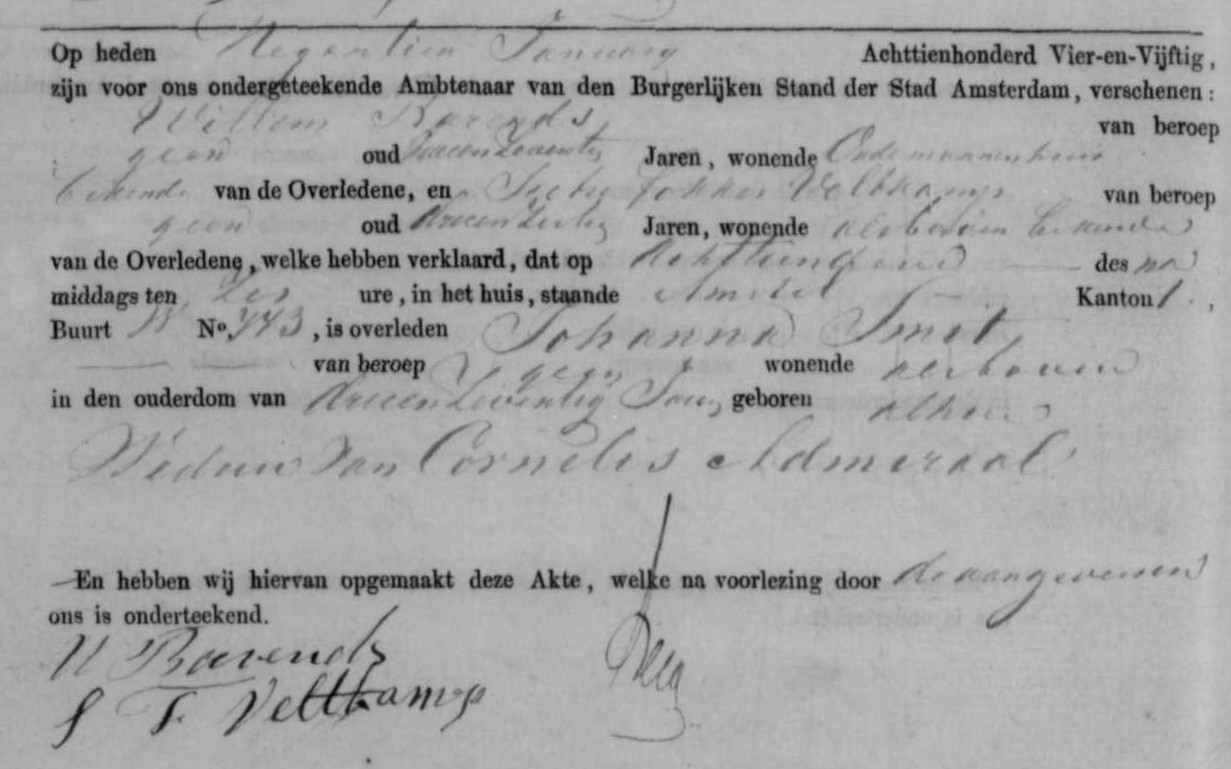 Op heden Negentien January Achttienhonderd Vier-en-Vijftig,
zijn voor ons ondergeteekende Ambtenaar van den Burgerlijken Stand der Stad Amsterdam, verschenen:
Willem Barends van beroep
geen oud Jaren, wonende Oudemannenhuis
bekende van de Overledene, en Fokkes Veltkamp van beroep
geen oud Jaren, wonende alsboven bekende
van de Overledene, welke hebben verklaard, dat op Achttiendezer des na
middags ten zes ure, in het huis, staande Amstel Kanton 1.,
Buurt No. 443, is overleden Johanna Smit
van beroep geen wonende alsboven
in den ouderdom van drieenzeventig Jaar, geboren alhier
Weduwe van Cornelis Admiraal
En hebben wij hiervan opgemaakt deze Akte, welke na voorlezing door de aangevers en
ons is onderteekend.
W Barends
S F. Veltkamp